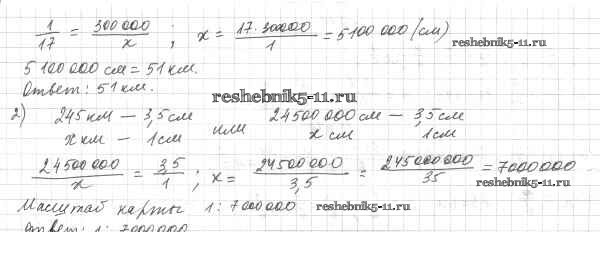 1/17 = 300 000/x ; x = 17·300000/1 = 5100 000 (см)
reshebnik5-11.ru
5 100 000 см = 51 км.
Ответ: 51 км.
reshebnik5-11.ru
2) 245 км — 3,5 см или 24500 000 см — 3,5 см
x км — 1 см x см 1 см
24500 000/x = 3,5/1 ; x = 24500000/3,5 = 245000000/35 = 7000000
reshebnik5-11.ru
Масштаб карты 1 : 7000000 reshebnik5-11.ru
Ответ: 1: 7000000